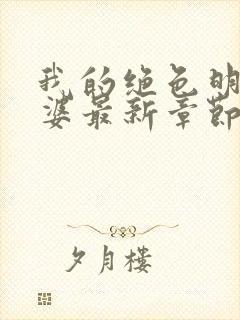 我的绝色明
婆最新章节
夕月楼